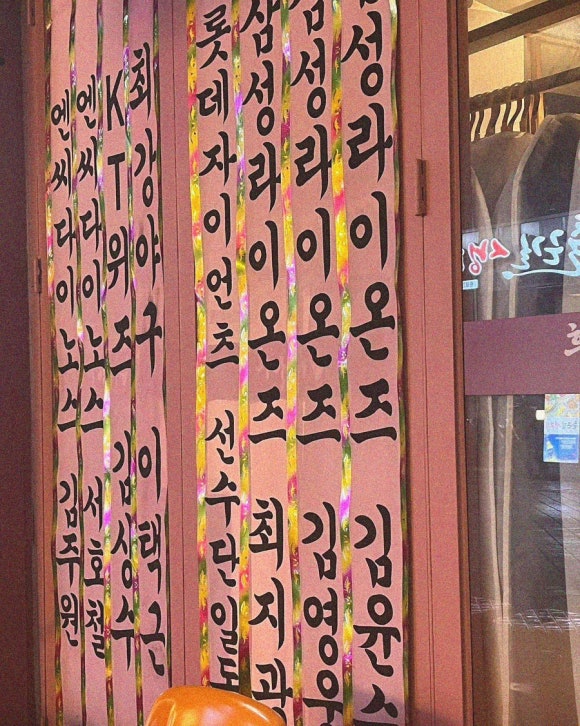 엔씨다이노스 김주원
엔씨다이노스 서호철
KT위즈 김상수
최강야구 이택근
롯데자이언츠 선수단일동
삼성라이온즈 최지광
삼성라이온즈 김영우
삼성라이온즈 김윤수